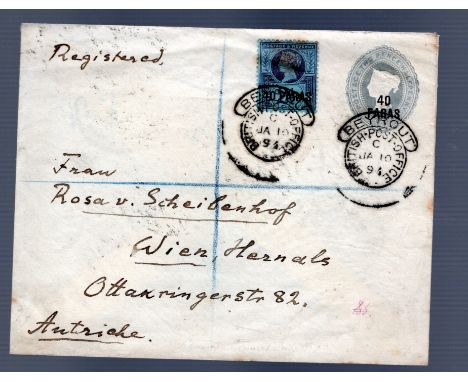 Registered,
POSTAGE & REVENUE
40 PARAS
BEYROUT
BRITISH-POST-OFFICE
C
JA 10
94
40
PARAS
BEYROUT
BRITISH-POST-OFFICE
C
JA 10
94
Frau
Rosa v. Scheibenhof
Wien, Hernals
Ottakringerstr 82.
Autriche.